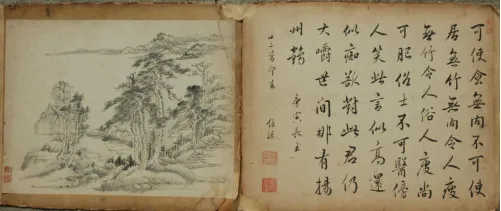 可使食無肉不可使
居無竹無肉令人瘦
無竹令人俗人瘦尚
可肥俗士不可醫傍
人笑此言似高還
似痴欲對此君仍
大嚼世間那有揚
州鶴 庚寅長至
十二